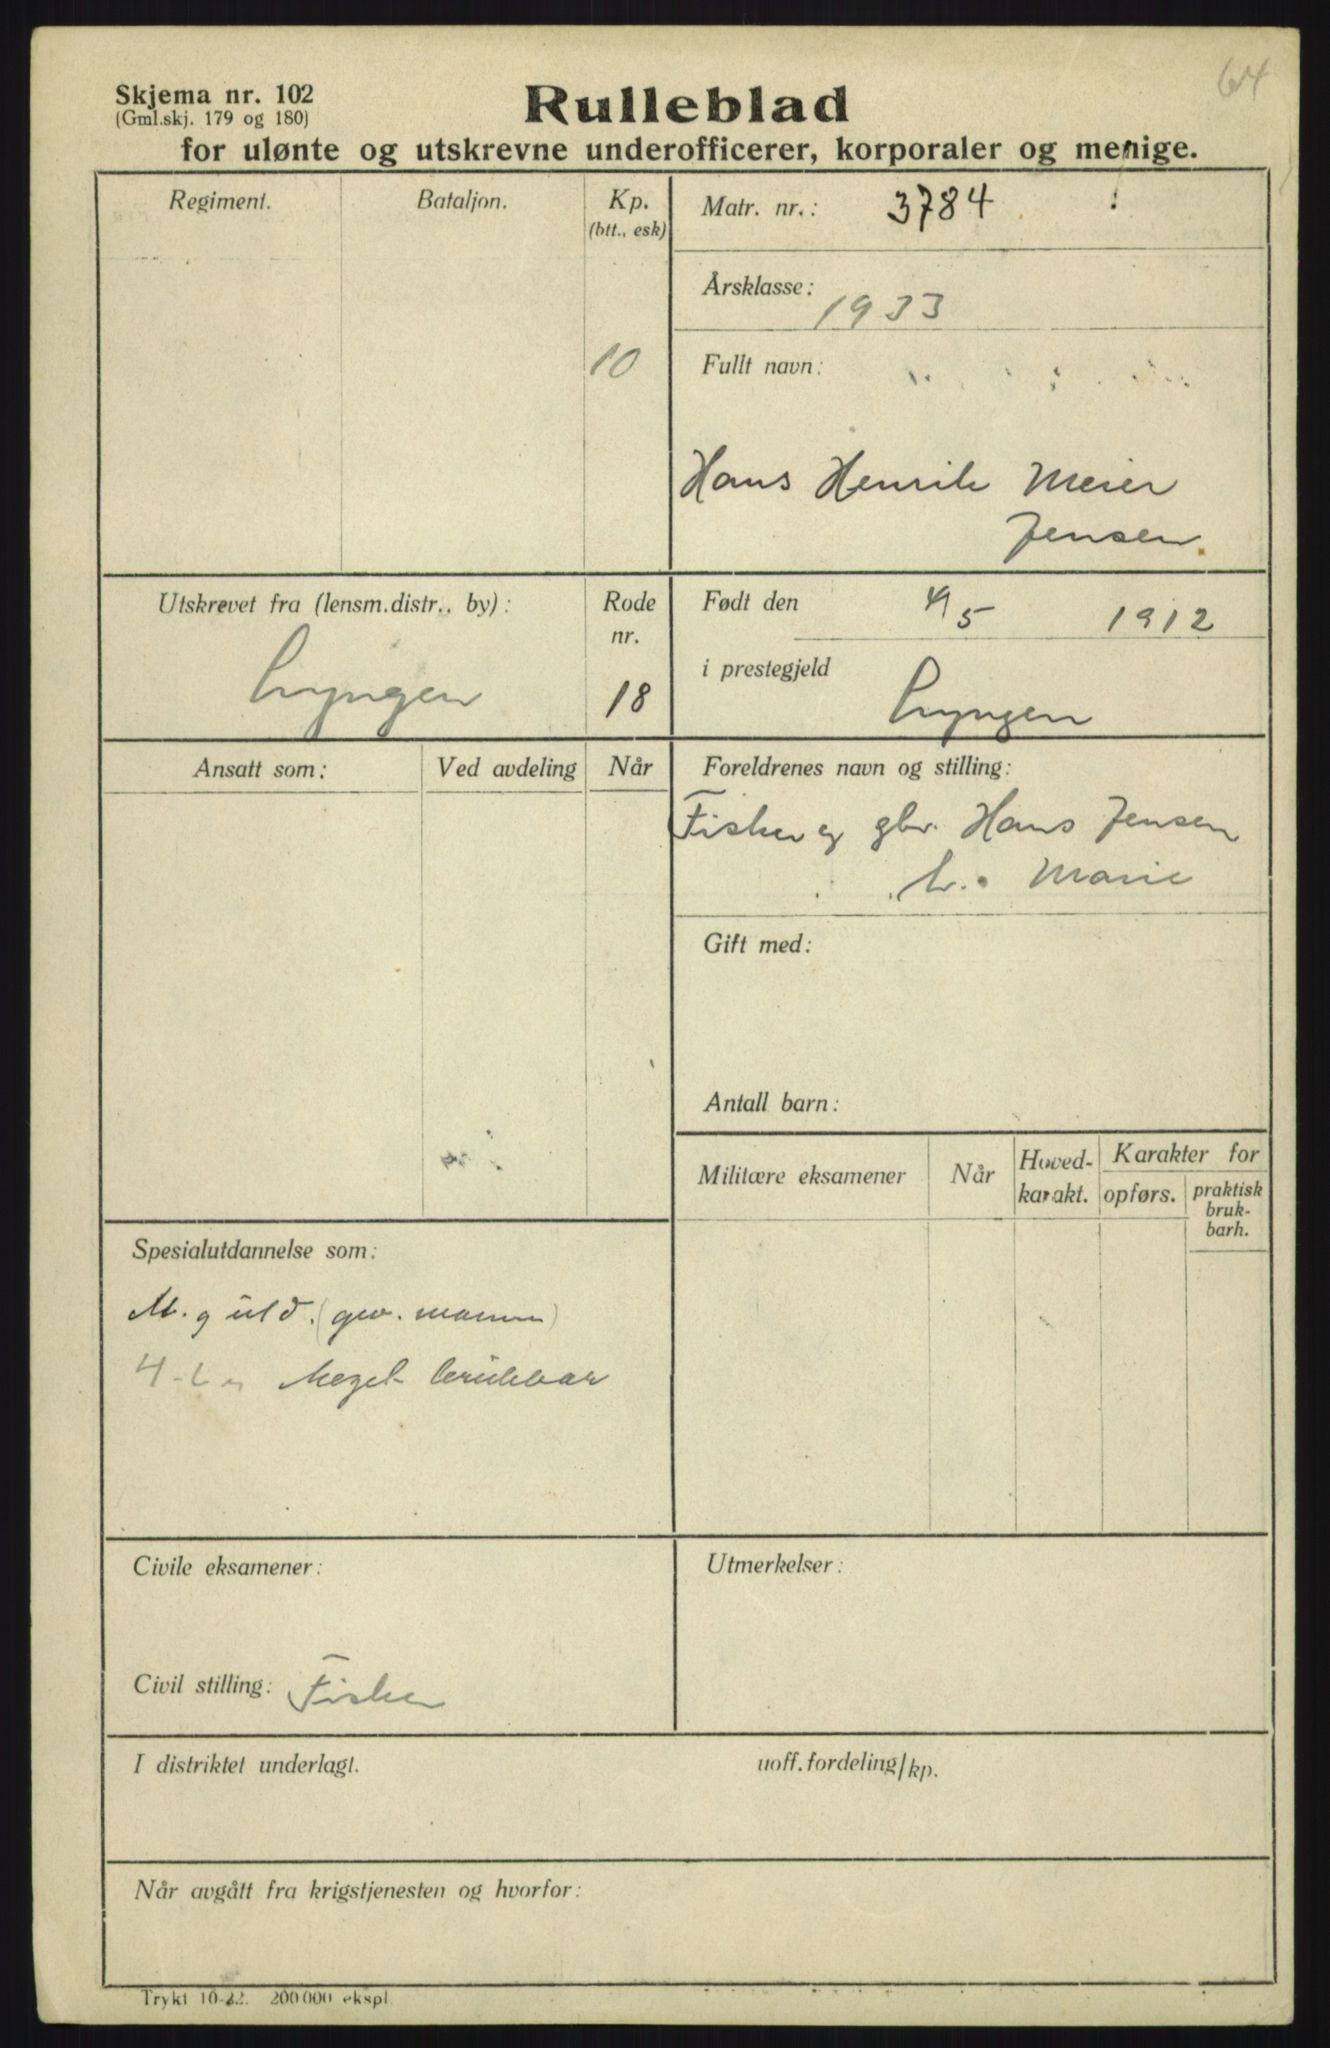 64
Skjema nr. 102
(Gml.skj. 179 og 180)
Rulleblad
for ulønte og utskrevne underofficerer, korporaler og menige.
Regiment.
Bataljon.
Kp.
(btt., esk)
10
Matr. nr.: 3784
Årsklasse: 1933
Fullt navn:
Hans Henrik Meier
Jensen
Utskrevet fra (lensm.distr., by):
Lyngen
Rode
nr.
18
Født den 4/5 1912
i prestegjeld
Lyngen
Ansatt som:
Ved avdeling
Når
Foreldrenes navn og stilling:
Fisker og gbr. Hans Jensen
h. Marie
Gift med:
Antall barn:
Militære eksamener
Når
Hoved-
karakt.
Karakter for
opførs.
praktisk
bruk-
barh.
Spesialutdannelse som:
M. g uld. (gev. mann)
Meget brukbar
Civile eksamener:
Civil stilling: Fisker
Utmerkelser:
I distriktet underlagt.
uoff.fordeling/kp.
Når avgått fra krigstjenesten og hvorfor:
Trykt 10-22. 200 000 ekspl.